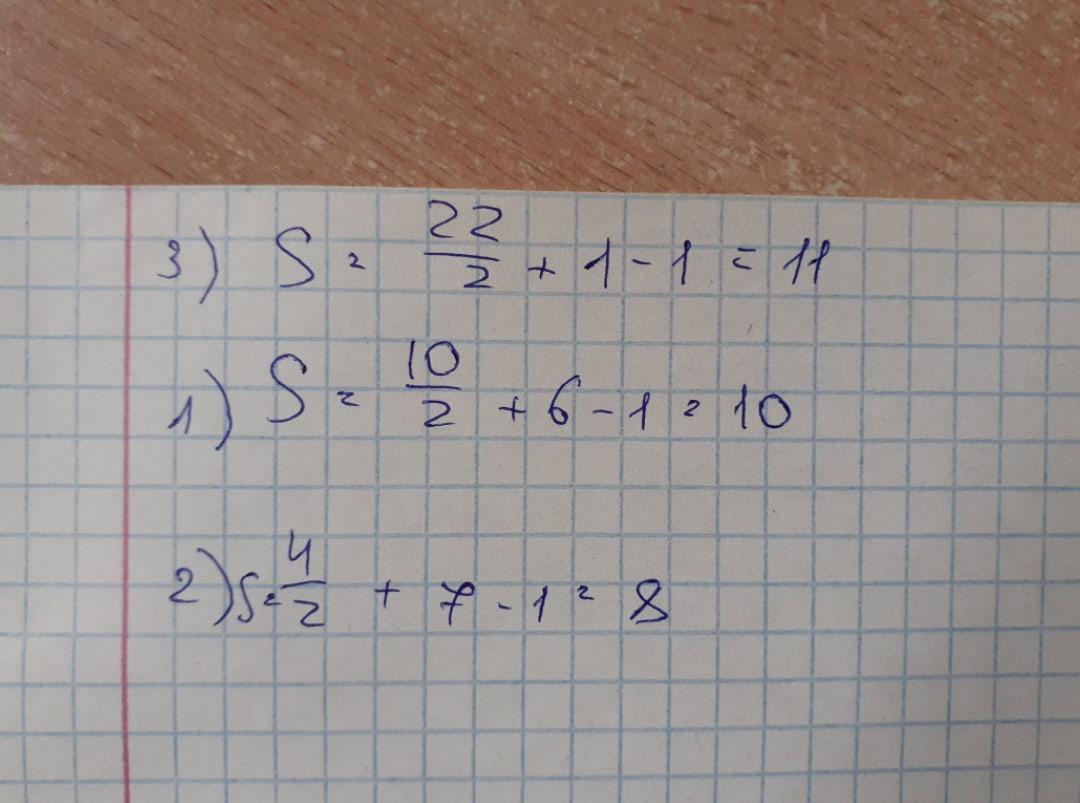 3) S = 22/2 + 1 - 1 = 11
1) S = 10/2 + 6 - 1 = 10
2) S = 4/2 + 7 - 1 = 8